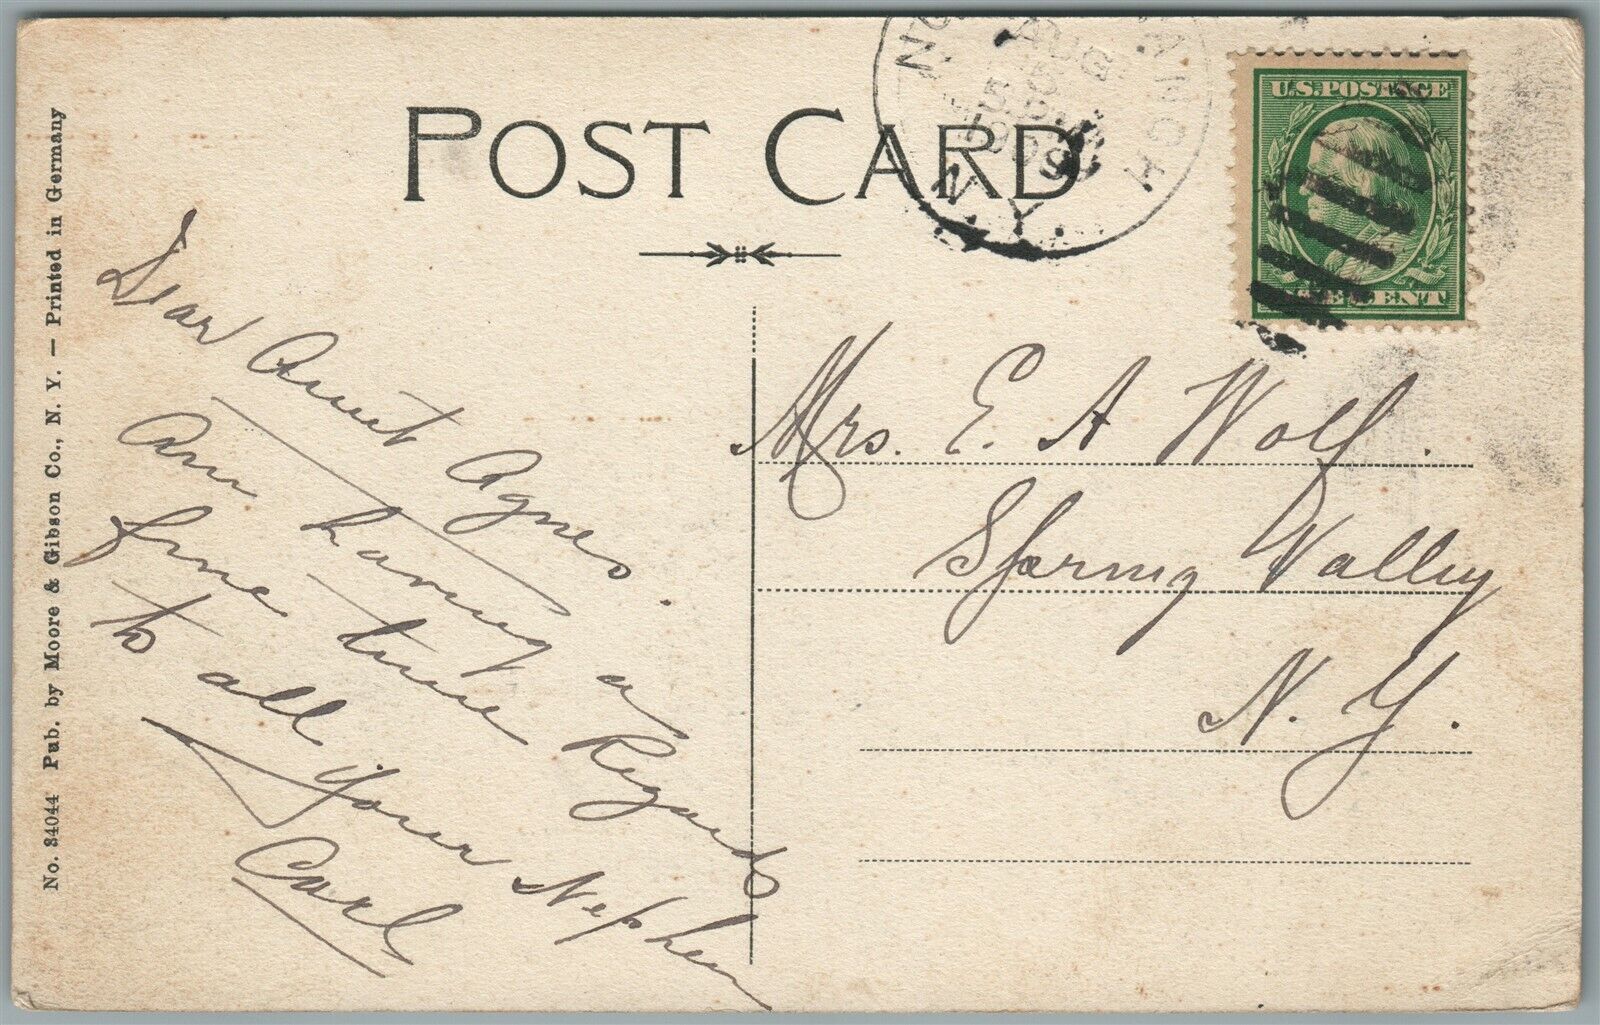 POST CARD
AUG
5
1909
N.Y.
U.S. POSTAGE
CENT
No. 34044 Pub. by Moore & Gibson Co., N. Y. — Printed in Germany
Dear Aunt Agnes.
Am having a
fine time Regards
to all Your Nephew
Carl
Mrs. E. A Wolf.
Spring Valley
N. Y.